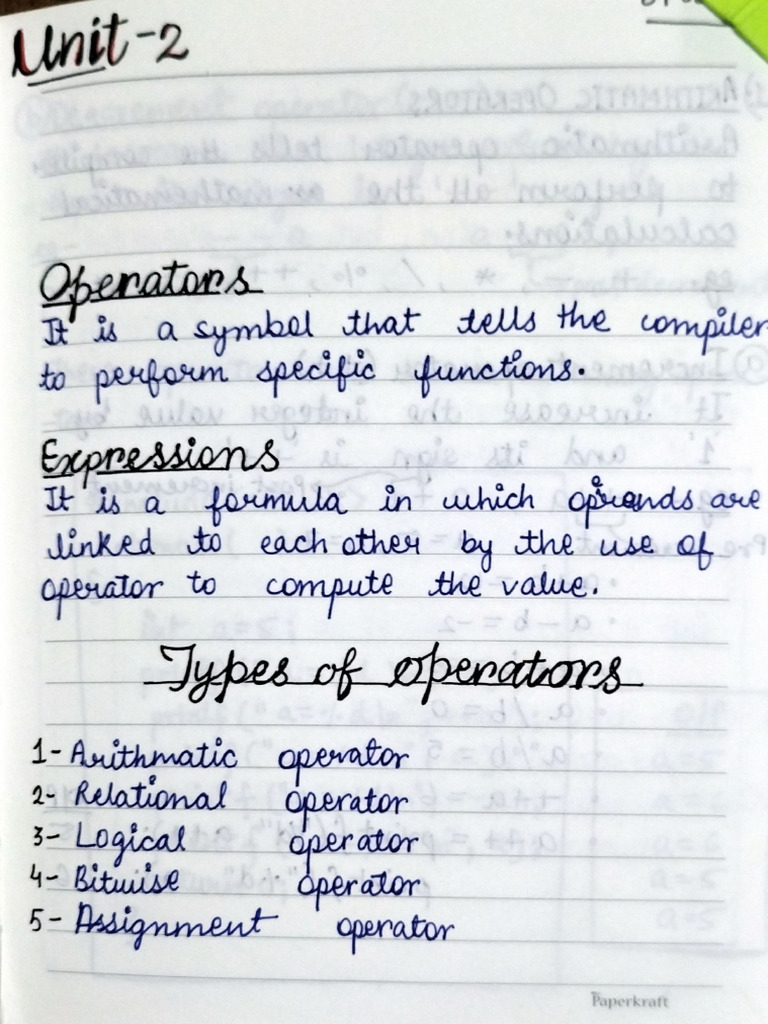 Unit-2
Operators
It is a symbol that tells the compiler
to perform specific functions.
Expressions
It is a formula in which are
linked to each other by the use of
operator to compute the value.
Types of operators
1- Arithmatic operator
2- Relational operator
3- Logical operator
4- Bitwise operator
5- Assignment operator
Paperkraft